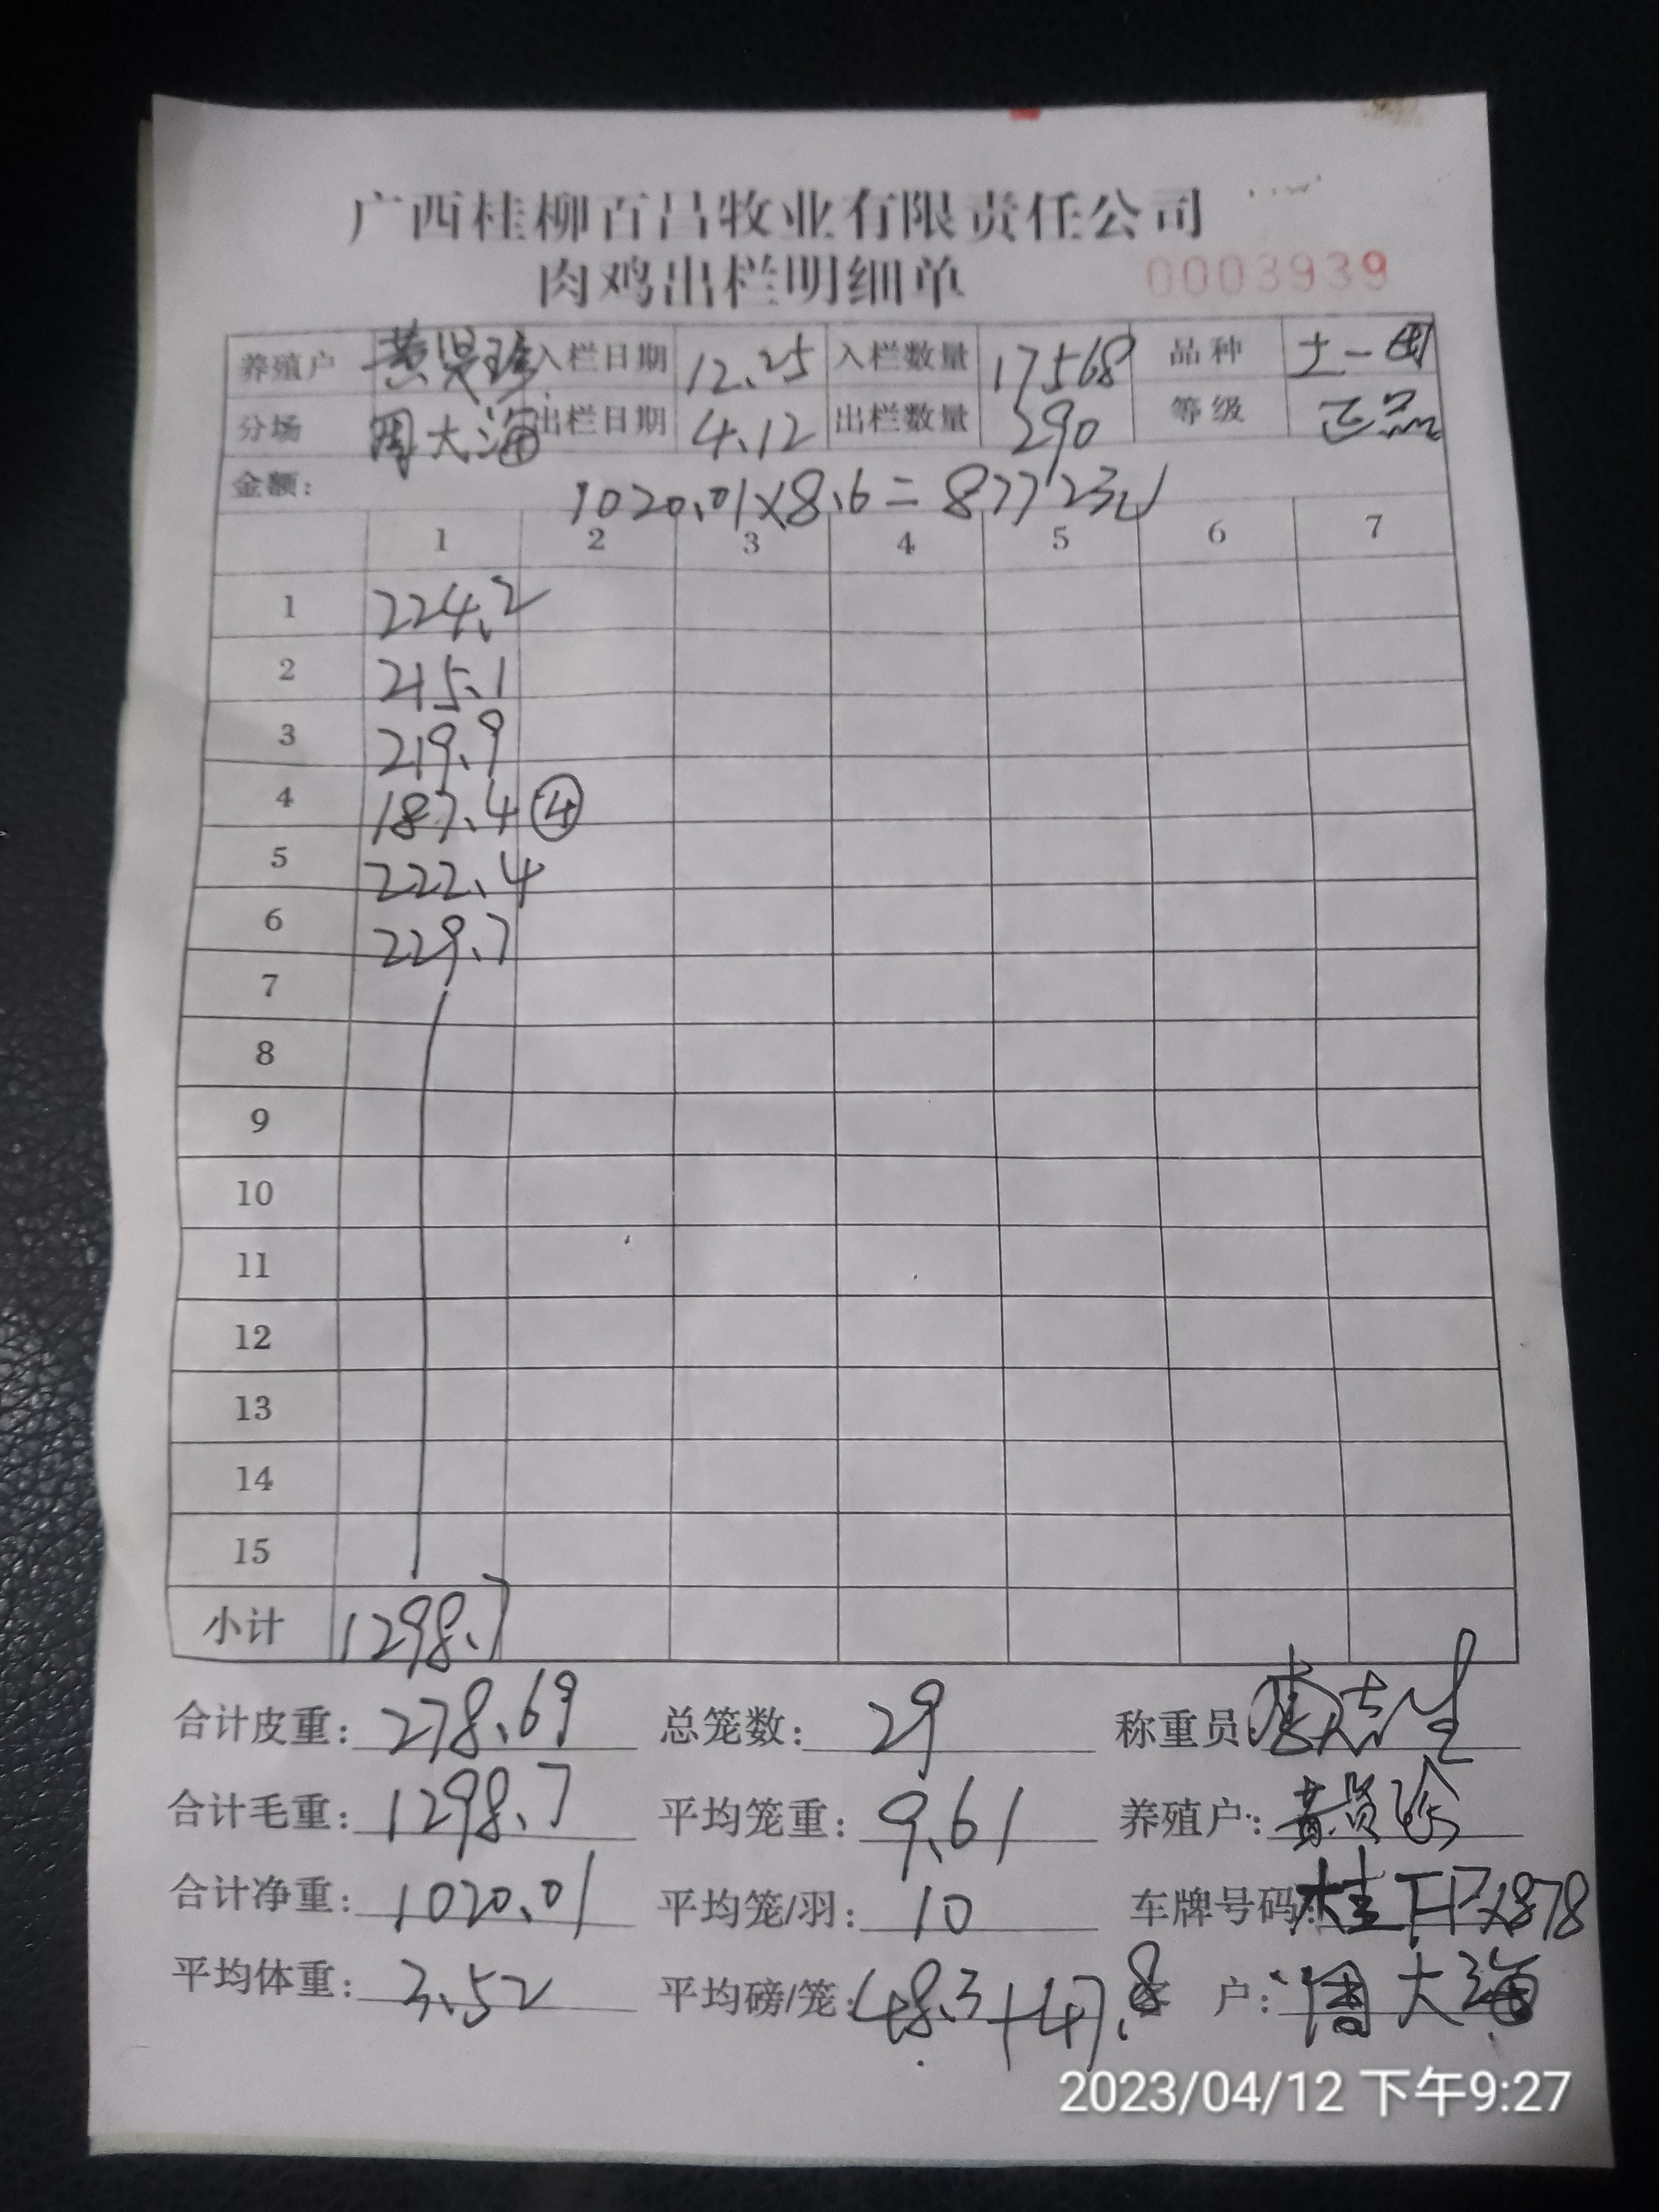 广西桂柳百昌牧业有限责任公司
肉鸡出栏明细单 0003939
养殖户 黄 入栏日期 12.25 入栏数量 17568 品种 土一
分场 周大海 出栏日期 4.12 出栏数量 290 等级 正品
金额: 1020.01×8.6=8772元
1 2 3 4 5 6 7
1 224.2
2 215.1
3 219.9
4 187.4 ④
5 222.4
6 229.7
7
8
9
10
11
12
13
14
15
小计 1298.7
合计皮重: 278.69 总笼数: 29 称重员 李志
合计毛重: 1298.7 平均笼重: 9.61 养殖户: 黄
合计净重: 1020.01 平均笼/羽: 10 车牌号码: 桂
平均体重: 3.52 平均磅/笼: 48.3+47.8 户: 周大海
2023/04/12 下午9:27